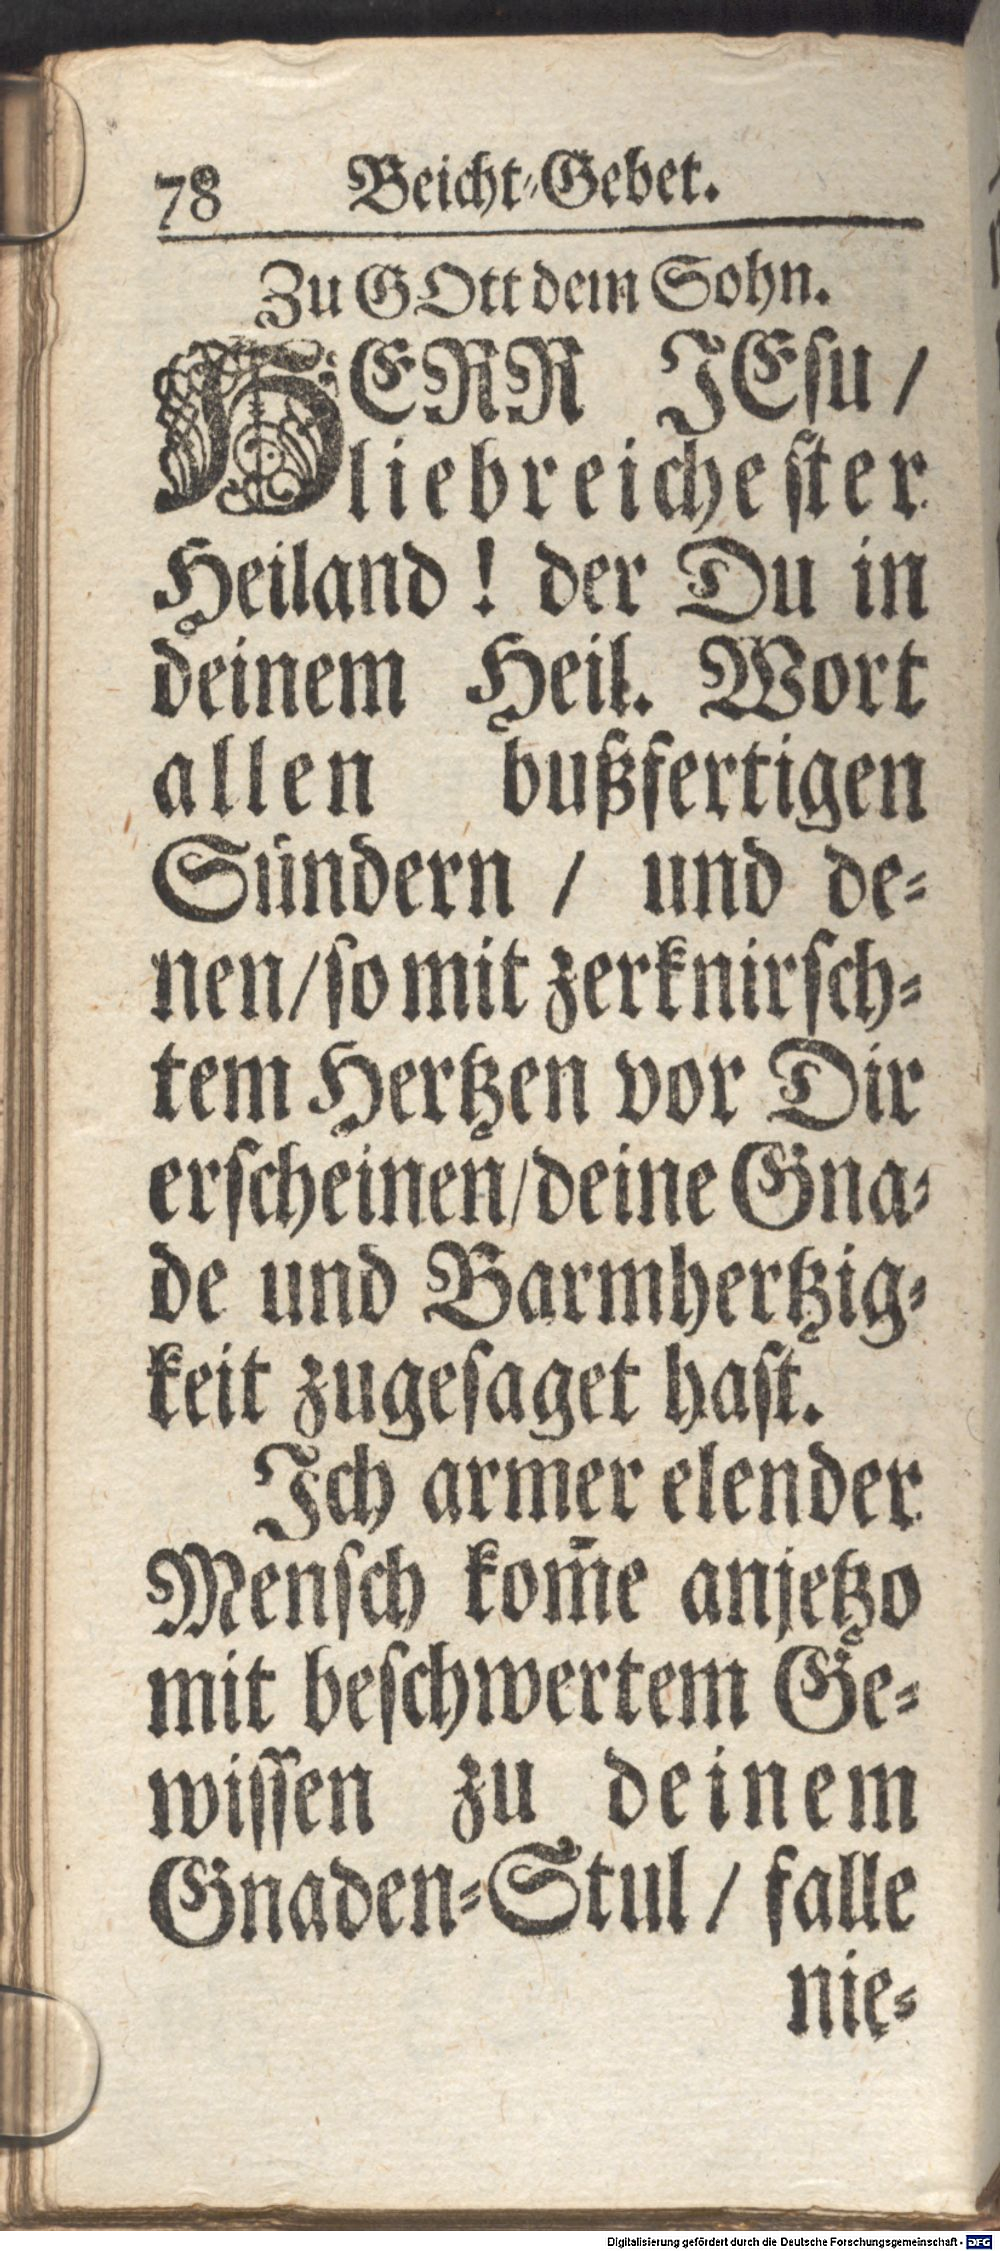 78 Beicht-Gebet.
Zu GOtt dem Sohn.
HERR JEsu /
liebreichester
Heiland ! der Du in
deinem Heil. Wort
allen bußfertigen
Sündern / und de-
nen/so mit zerknirsch-
tem Hertzen vor Dir
erscheinen/deine Gna-
de und Barmhertzig-
keit zugesaget hast.
Ich armer elender
Mensch kom̃e anjetzo
mit beschwertem Ge-
wissen zu deinem
Gnaden-Stul / falle
nie-
Digitalisierung gefördert durch die Deutsche Forschungsgemeinschaft - DFG